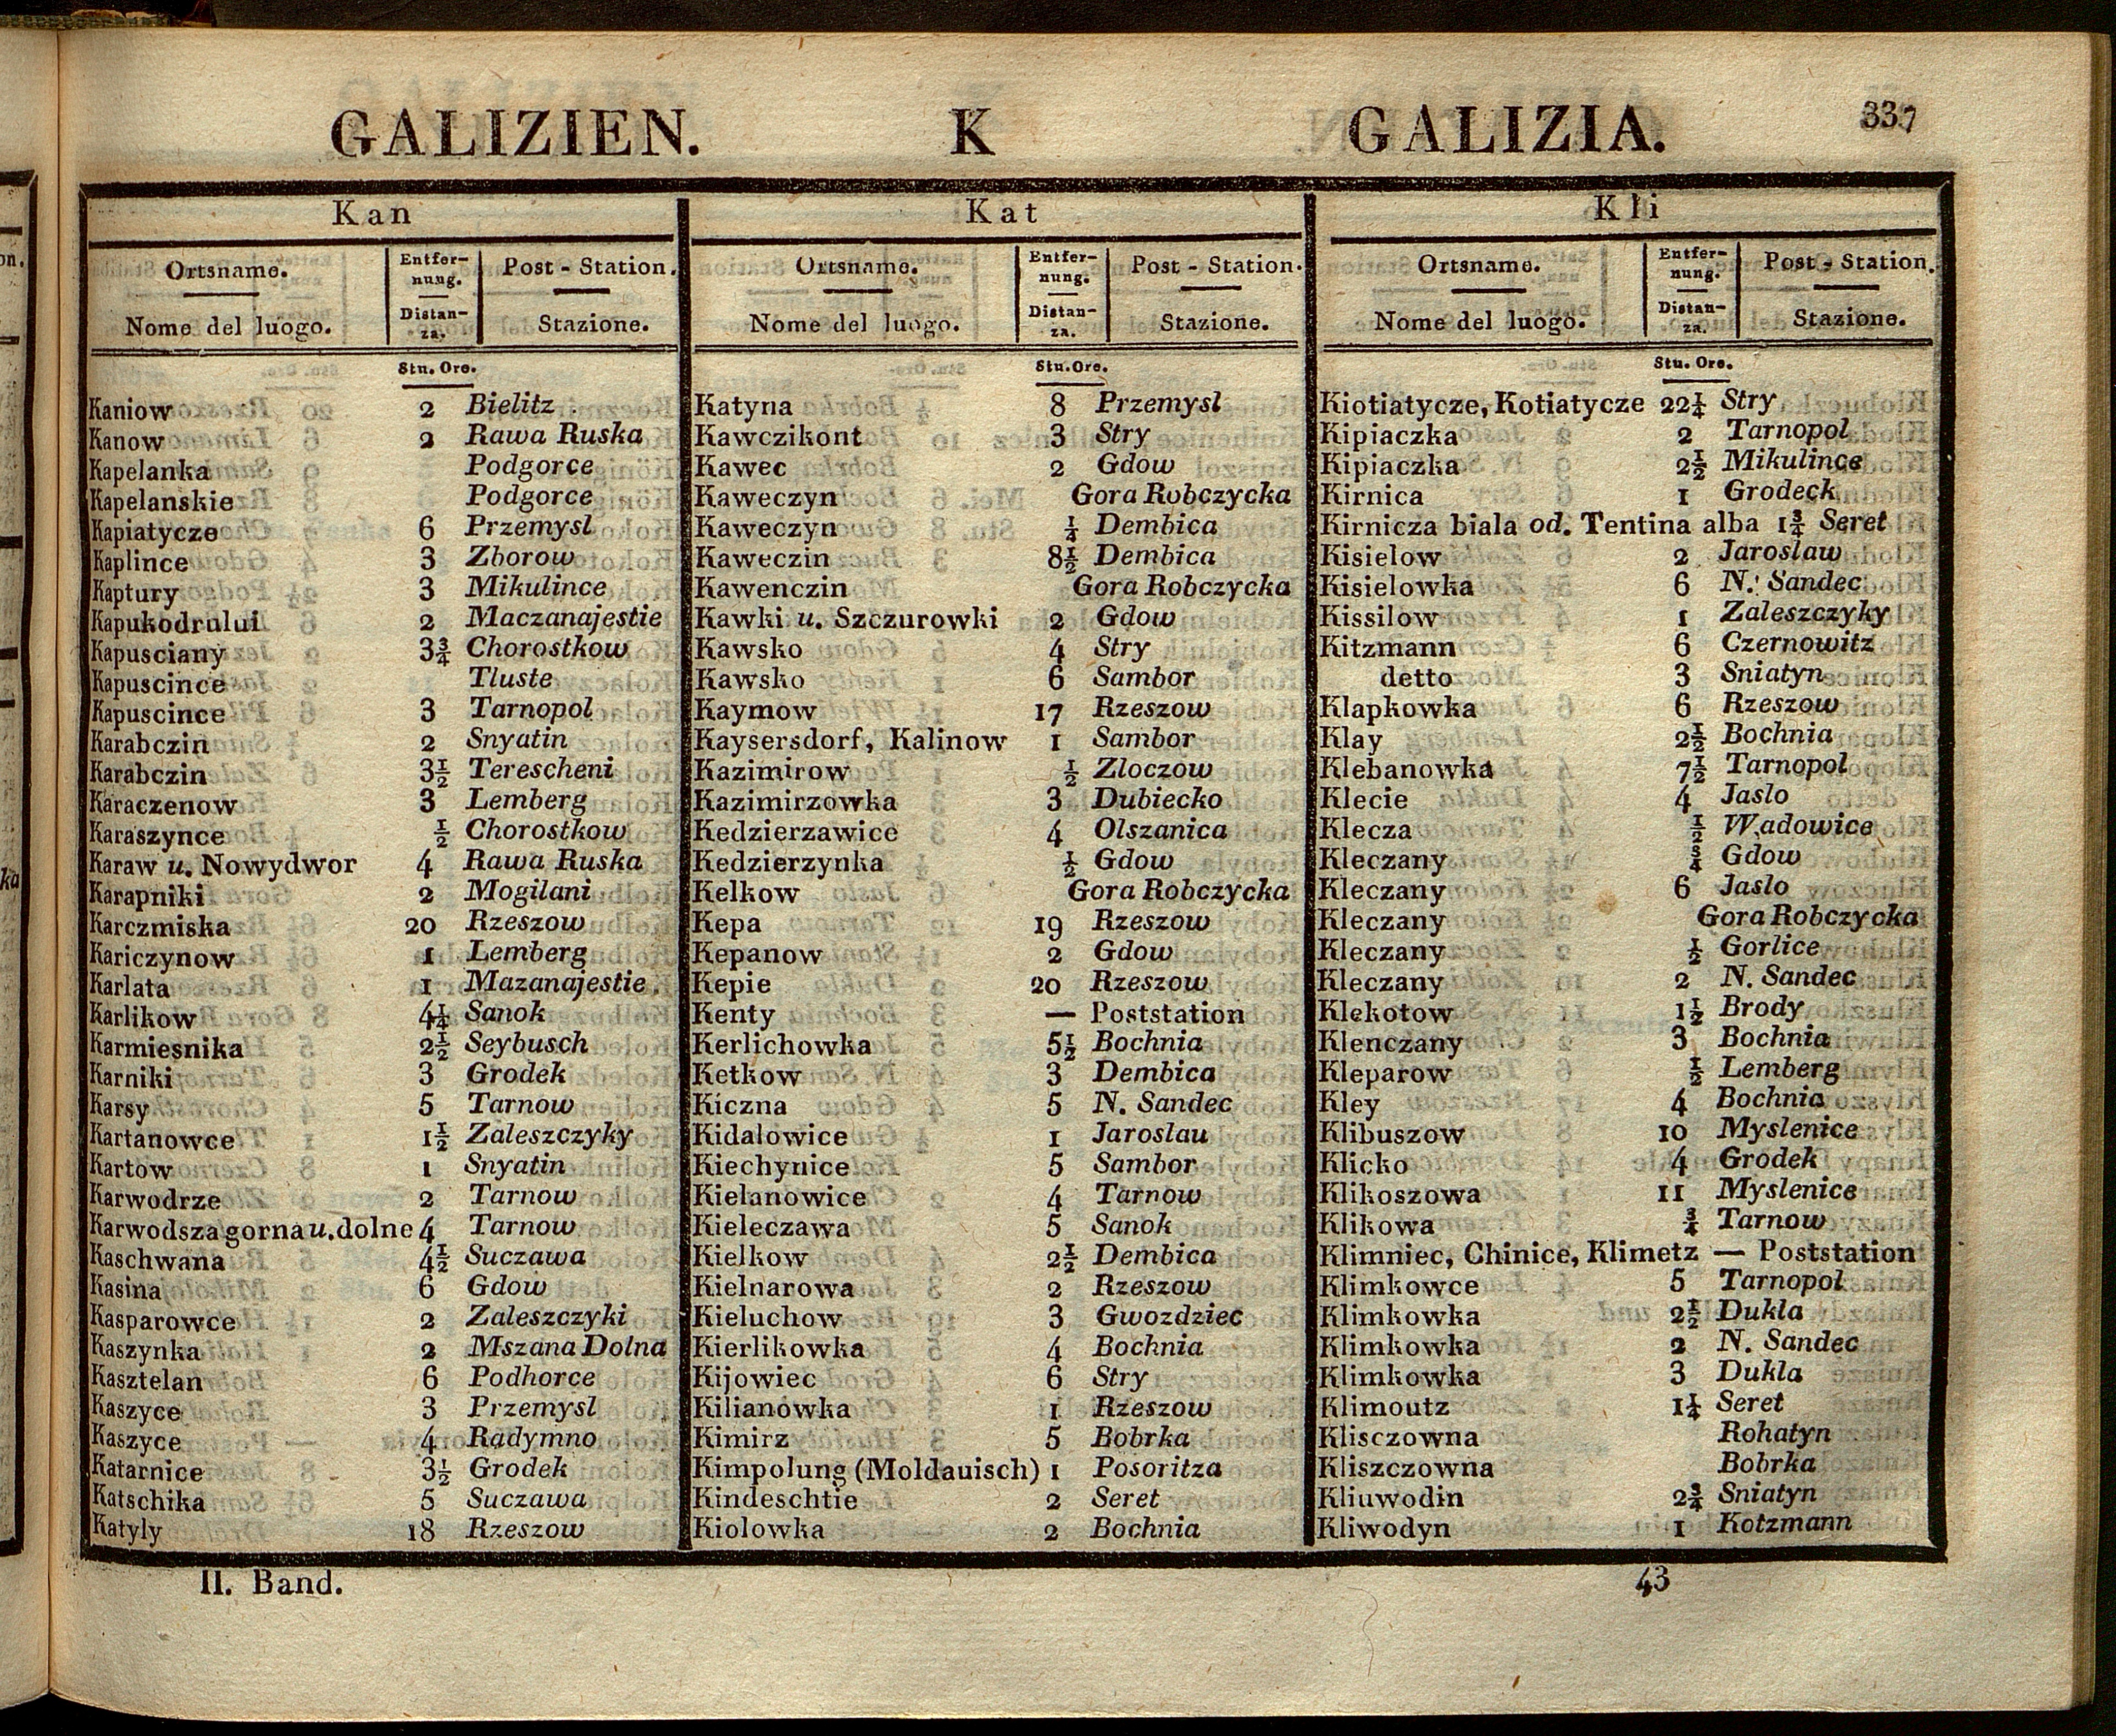 GALIZIEN. K GALIZIA. 337
Kan
Ortsname. Entfer- Post - Station.
nung.
Nome del luogo. Distan- Stazione.
za.
Stu. Ore.
Kaniow 2 Bielitz
Kanow 2 Rawa Ruska
Kapelanka Podgorce
Kapelanskie Podgorce
Kapiatycze 6 Przemysl
Kaplince 3 Zborow
Kaptury 3 Mikulince
Kapukodrului 2 Maczanajestie
Kapusciany 3¾ Chorostkow
Kapuscince Tluste
Kapuscince 3 Tarnopol
Karabczin 2 Snyatin
Karabczin 3½ Terescheni
Karaczenow 3 Lemberg
Karaszynce ½ Chorostkow
Karaw u. Nowydwor 4 Rawa Ruska
Karapniki 2 Mogilani
Karczmiska 20 Rzeszow
Kariczynow 1 Lemberg
Karlata 1 Mazanajestie
Karlikow 4¼ Sanok
Karmiesnika 2½ Seybusch
Karniki 3 Grodek
Karsy 5 Tarnow
Kartanowce 1½ Zaleszczyky
Kartow 1 Snyatin
Karwodrze 2 Tarnow
Karwodsza gorna u. dolne 4 Tarnow
Kaschwana 4½ Suczawa
Kasina 6 Gdow
Kasparowce 2 Zaleszczyki
Kaszynka 2 Mszana Dolna
Kasztelan 6 Podhorce
Kaszyce 3 Przemysl
Kaszyce 4 Radymno
Katarnice 3½ Grodek
Katschika 5 Suczawa
Katyly 18 Rzeszow
Kat
Ortsname. Entfer- Post - Station.
nung.
Nome del luogo. Distan- Stazione.
za.
Stu. Ore.
Katyna 8 Przemysl
Kawczikont 3 Stry
Kawec 2 Gdow
Kaweczyn Gora Robczycka
Kaweczyn ¼ Dembica
Kaweczin 8½ Dembica
Kawenczin Gora Robczycka
Kawki u. Szczurowki 2 Gdow
Kawsko 4 Stry
Kawsko 6 Sambor
Kaymow 17 Rzeszow
Kaysersdorf, Kalinow 1 Sambor
Kazimirow ½ Zloczow
Kazimirzowka 3 Dubiecko
Kedzierzawice 4 Olszanica
Kedzierzynka ½ Gdow
Kelkow Gora Robczycka
Kepa 19 Rzeszow
Kepanow 2 Gdow
Kepie 20 Rzeszow
Kenty — Poststation
Kerlichowka 5½ Bochnia
Ketkow 3 Dembica
Kiczna 5 N. Sandec
Kidalowice 1 Jaroslau
Kiechynice 5 Sambor
Kielanowice 4 Tarnow
Kieleczawa 5 Sanok
Kielkow 2½ Dembica
Kielnarowa 2 Rzeszow
Kieluchow 3 Gwozdziec
Kierlikowka 4 Bochnia
Kijowiec 6 Stry
Kilianowka 1 Rzeszow
Kimirz 5 Bobrka
Kimpolung (Moldauisch) 1 Posoritza
Kindeschtie 2 Seret
Kiolowka 2 Bochnia
Kli
Ortsname. Entfer- Post - Station.
nung.
Nome del luogo. Distan- Stazione.
za.
Stu. Ore.
Kiotiatycze, Kotiatycze 22¼ Stry
Kipiaczka 2 Tarnopol
Kipiaczka 2½ Mikulince
Kirnica 1 Grodeck
Kirnicza biala od. Tentina alba 1¾ Seret
Kisielow 2 Jaroslaw
Kisielowka 6 N. Sandec
Kissilow 1 Zaleszczyky
Kitzmann 6 Czernowitz
detto 3 Sniatyn
Klapkowka 6 Rzeszow
Klay 2½ Bochnia
Klebanowka 7½ Tarnopol
Klecie 4 Jaslo
Klecza ½ Wadowice
Kleczany ¾ Gdow
Kleczany 6 Jaslo
Kleczany Gora Robczycka
Kleczany ½ Gorlice
Kleczany 2 N. Sandec
Klekotow 1½ Brody
Klenczany 3 Bochnia
Kleparow ½ Lemberg
Kley 4 Bochnia
Klibuszow 10 Myslenice
Klicko 4 Grodek
Klikoszowa 11 Myslenice
Klikowa ¾ Tarnow
Klimniec, Chinice, Klimetz — Poststation
Klimkowce 5 Tarnopol
Klimkowka 2½ Dukla
Klimkowka 2 N. Sandec
Klimkowka 3 Dukla
Klimoutz 1¼ Seret
Klisczowna Rohatyn
Kliszczowna Bobrka
Kliuwodin 2¾ Sniatyn
Kliwodyn 1 Kotzmann
II. Band. 43